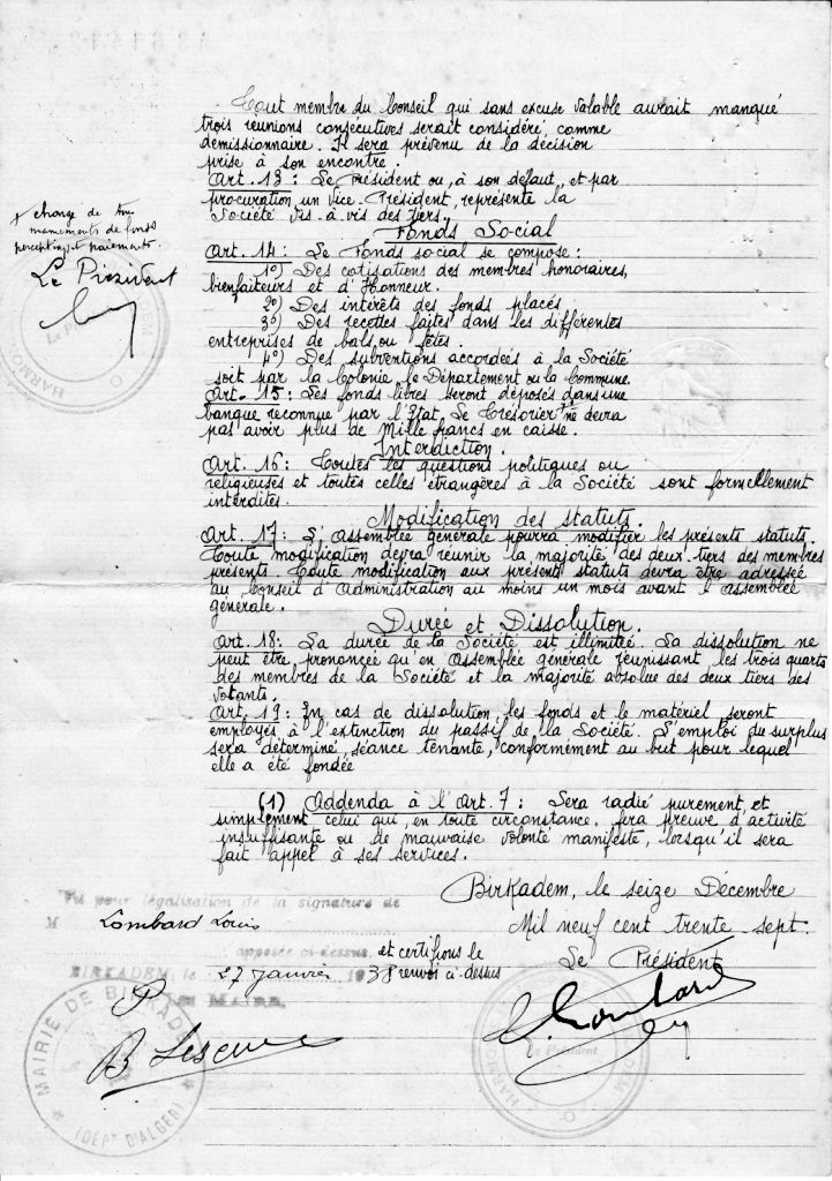 Tout membre du Conseil qui sans excuse valable aurait manqué
trois réunions consécutives serait considéré, comme
démissionnaire. Il sera prévenu de la décision
prise à son encontre.
Art. 13 : Le Président ou, à son défaut, et par
procuration un Vice-Président, représente la
Société vis-à-vis des Tiers.
+ chargé de tous
maniements de fonds
perceptions et paiements.
Le Président
Fonds Social
Art. 14 : Le Fonds social se compose :
1º) Des cotisations des membres honoraires,
bienfaiteurs et d'Honneur.
2º) Des intérêts des fonds placés
3º) Des recettes faites dans les différentes
entreprises de bals ou fêtes.
4º) Des subventions accordées à la Société
soit par la Colonie, le Département ou la Commune.
Art. 15 : Les fonds libres seront déposés dans une
banque reconnue par l'Etat. Le Trésorier + ne devra
pas avoir plus de Mille francs en caisse.
Interdiction.
Art. 16 : Toutes les questions politiques ou
religieuses et toutes celles étrangères à la Société sont formellement
interdites.
Modification des statuts.
Art. 17 : L'Assemblée générale pourra modifier les présents statuts.
Toute modification devra réunir la majorité des deux-tiers des membres
présents. Toute modification aux présents statuts devra être adressée
au Conseil d'Administration au moins un mois avant l'assemblée
générale.
Durée et Dissolution.
Art. 18 : La durée de la Société est illimitée. La dissolution ne
peut être prononcée qu'en Assemblée générale réunissant les trois quarts
des membres de la Société et la majorité absolue des deux tiers des
votants.
Art. 19 : En cas de dissolution, les fonds et le matériel seront
employés à l'extinction du passif de la Société. L'emploi du surplus
sera déterminé, séance tenante, conformément au but pour lequel
elle a été fondée
(1) Addenda à l'Art. 7 : Sera radié purement et
simplement celui qui, en toute circonstance, fera preuve d'activité
insuffisante ou de mauvaise volonté manifeste, lorsqu'il sera
fait appel à ses services.
Birkadem, le seize Décembre
Mil neuf cent trente sept.
Le Président
Vu pour légalisation de la signature de
M Lombard Louis
apposée ci-dessus et certifions le
BIRKADEM, le 27 Janvier 1938 renvoi ci-dessus
P Le Maire,
B Lescure
L. Lombard
Le Président
MAIRIE DE BIRKADEM
(DEPT D'ALGER)